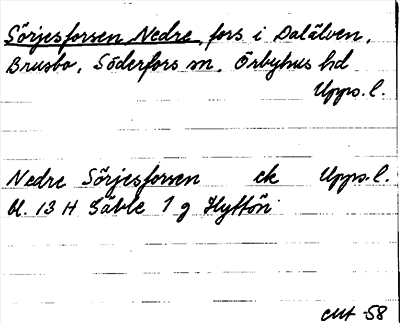 Sörjesforsen Nedre, fors i Dalälven,
Brusbo, Söderfors sn, Örbyhus hd
Upps. l.
Nedre Sörjesforsen ek Upps. l.
bl. 13 H Gävle 1 g Hyttön
-58